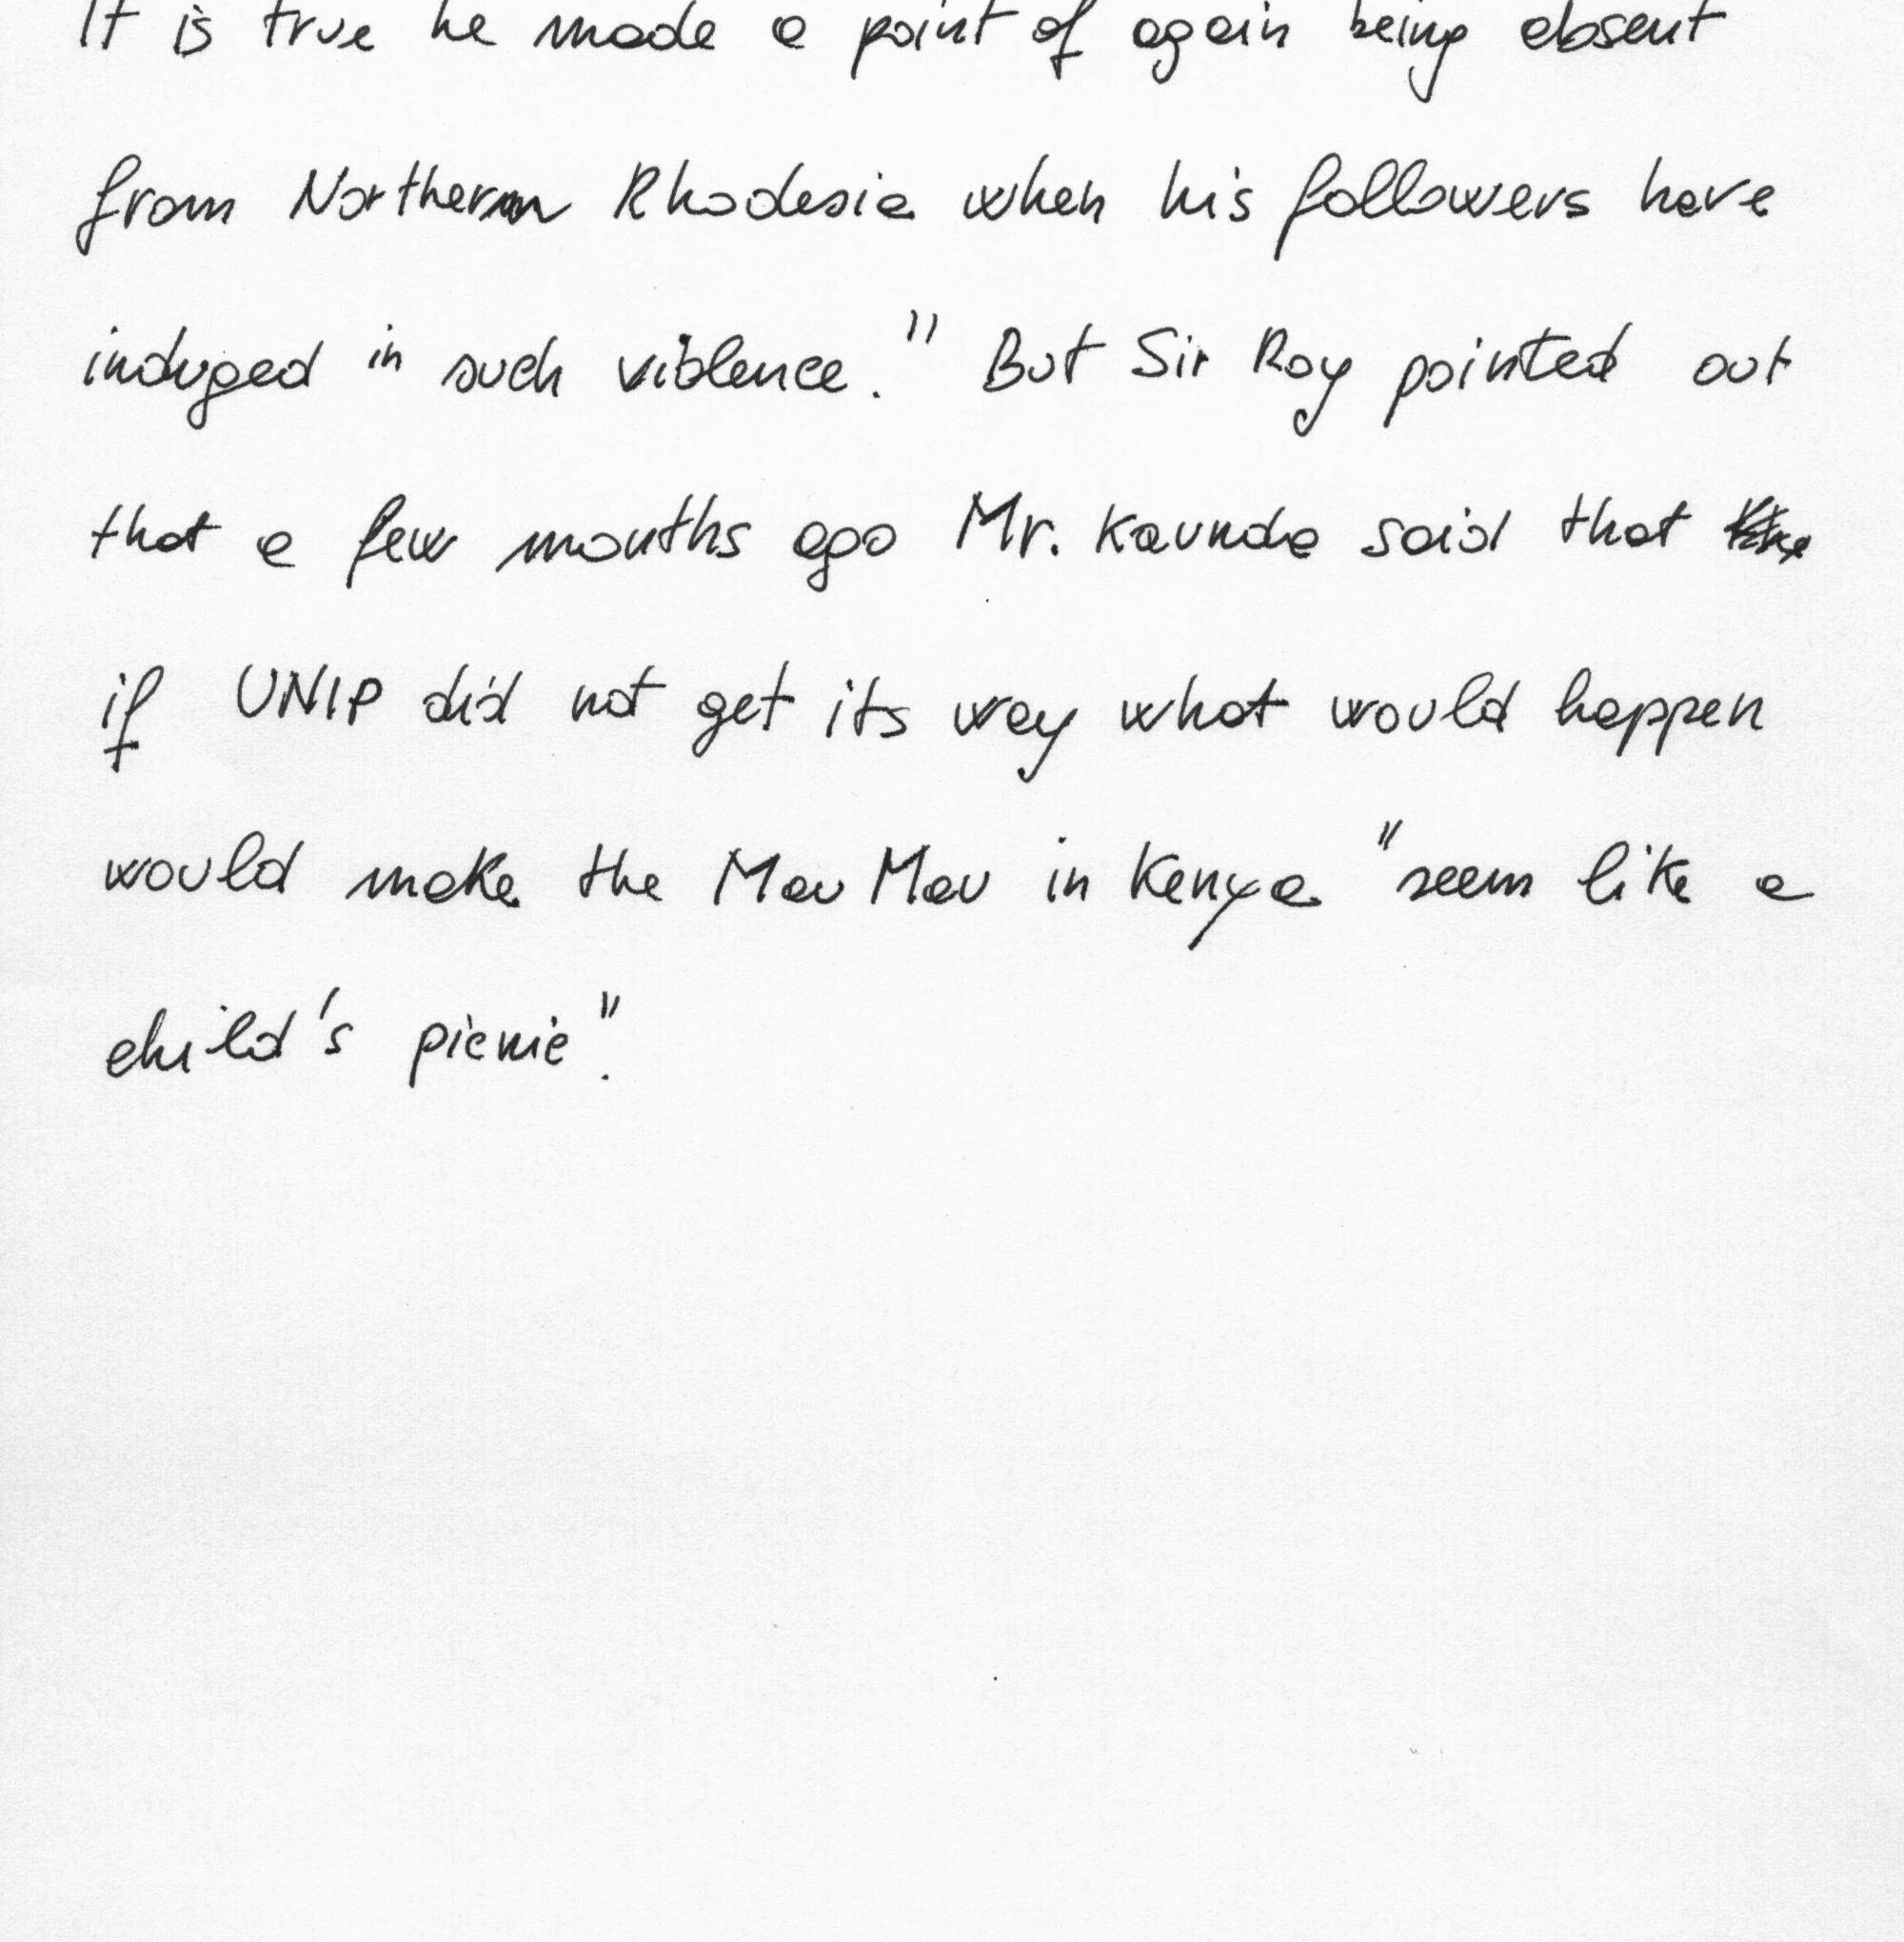 It is true he made a point of again being absent
from Northern Rhodesia when his followers have
induged in such violence." But Sir Roy pointed out
that a few months ago Mr. Kaunda said that
if UNIP did not get its way what would happen
would make the Mau Mau in Kenya "seem like a
child's picnic".